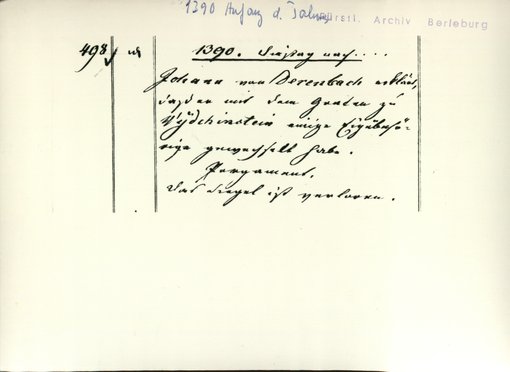 1390 Anfang d. Jahres
Fürstl. Archiv Berleburg
498
1390. Dienstag nach....
Johann von Derenbach erklärt,
daß er mit dem Grafen zu
Wydchinstein einige Eigenhö-
rige gewechselt habe.
Pergament.
Das Siegel ist verloren.